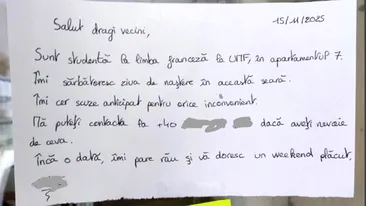 15/11/2025
Salut dragi vecini,
Sunt studentă la limba franceză la UMF, în apartamentul 7.
Îmi sărbătoresc ziua de naștere în această seară.
Îmi cer scuze anticipat pentru orice inconvenient.
Mă puteți contacta la +40 dacă aveți nevoie
de ceva.
Încă o dată, îmi pare rău și vă doresc un weekend plăcut,